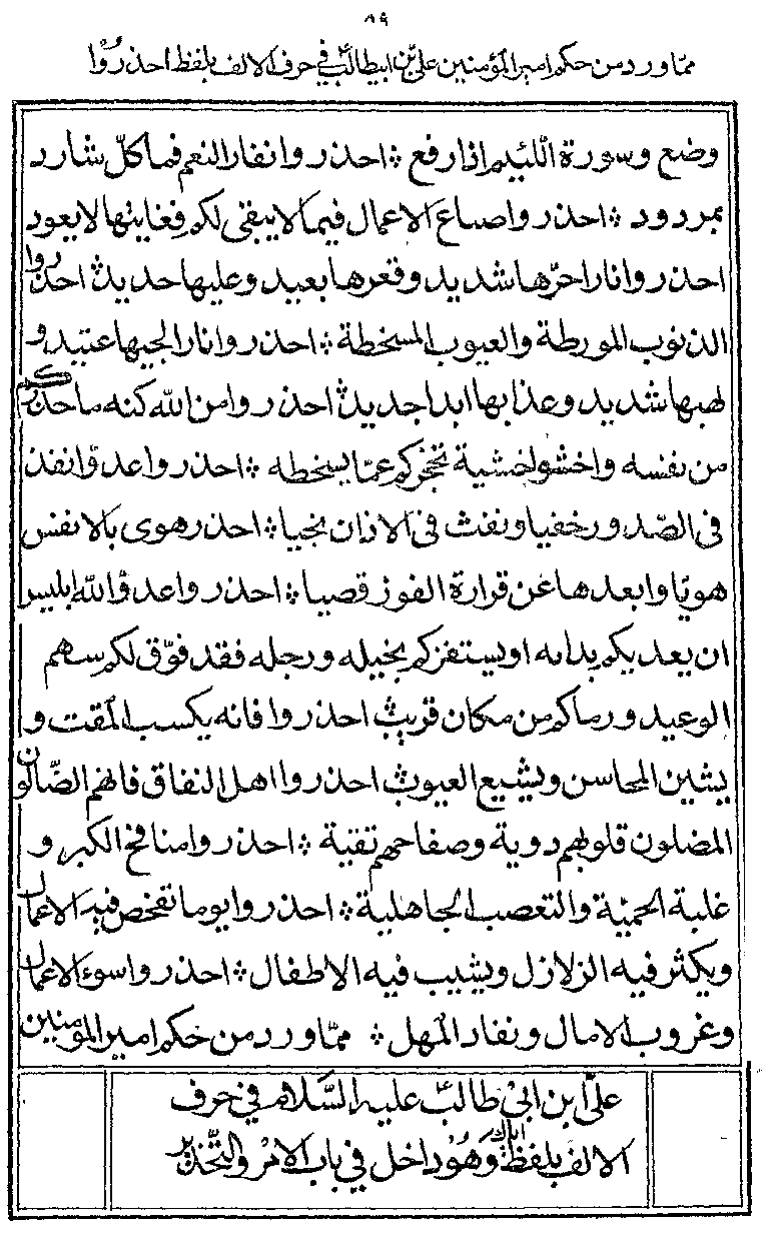 ٨٩
مما ورد من حكم امير المؤمنين على بن ابيطالب في حرف الالف بلفظ احذروا
وضع وسورة اللئيم اذا رفع ؞ احذروا نفار النعم فما كل شارد
بمردود ؞ احذروا ضياع الاعمار فيما لا يبقى لكم ففايتها لا يعود
احذروا نارا حرّها شديد وقعرها بعيد وعليها حديد ؞ احذروا
الذنوب المورطة والعيوب المسخطة ؞ احذروا نارا لجيها عتيد و
لهبها شديد وعذابها ابدا جديد ؞ احذروا من الله كنه ما حذركم
من نفسه واخشوا خشية تحجزكم عمّا يسخطه ؞ احذروا عدوّا نفذ
في الصّدور خفيا ونفث في الاذان نجيا ؞ احذر هوى بالانفس
هويّا وابعدها عن قرارة الفوز قصيا ؞ احذروا عدوّ الله ابليس
ان يعديكم بدائه او يستفزكم بخيله ورجله فقد فوّق لكم سهم
الوعيد ورماكم من مكان قريب ؞ احذروا فانه يكسب المقت و
يشين المحاسن ويشيع العيوب ؞ احذروا اهل النفاق فانهم الضّالون
المضلون قلوبهم دوية وصفاحهم نقية ؞ احذروا منافخ الكبر و
غلبة الحميّة والتعصب الجاهلية ؞ احذروا يوما تفحص فيه الاعمال
ويكثر فيه الزلازل ويشيب فيه الاطفال ؞ احذروا سوء الاعمال
وغروب الامال ونفار المهل ؞ ممّا ورد من حكم امير المؤمنين
علىّ ابن ابى طالب عليه السّلام في حرف
الالف بلفظ اياك وهو داخل في باب الامر والتحذير